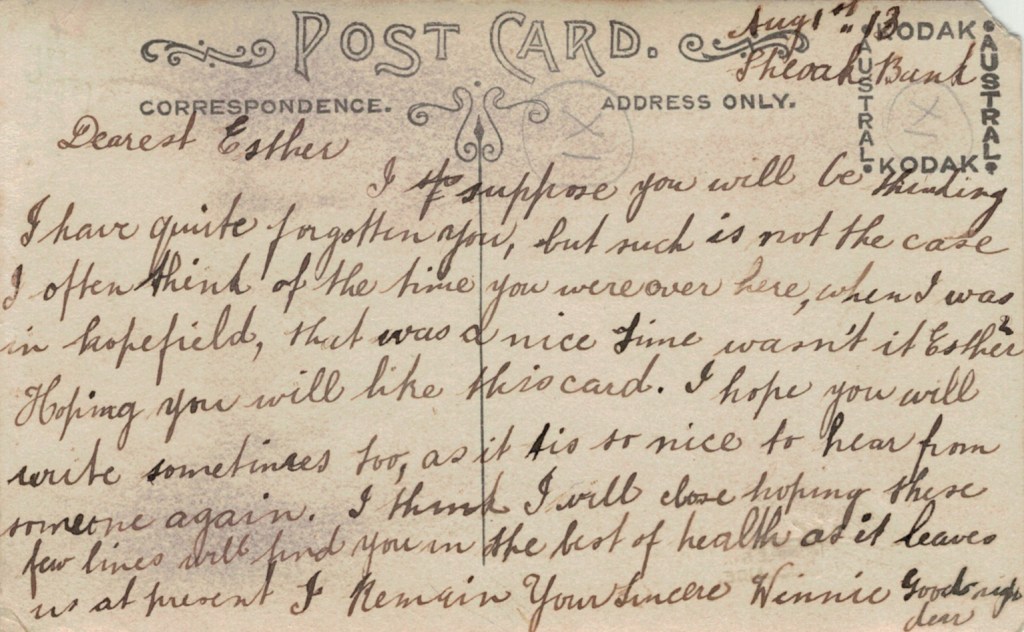 POST CARD.
Aug 1st 13
Sheoak Bank
KODAK
AUSTRAL
AUSTRAL
KODAK
CORRESPONDENCE.
ADDRESS ONLY.
Dearest Esther
I suppose you will be thinking
I have quite forgotten you, but such is not the case
I often think of the time you were over here, when I was
in hopefield, that was a nice time wasn't it Esther?
Hoping you will like this card. I hope you will
write sometimes too, as it tis so nice to hear from
someone again. I think I will close hoping these
few lines will find you in the best of health as it leaves
us at present I Remain Your Sincere Winnie Good night
dear